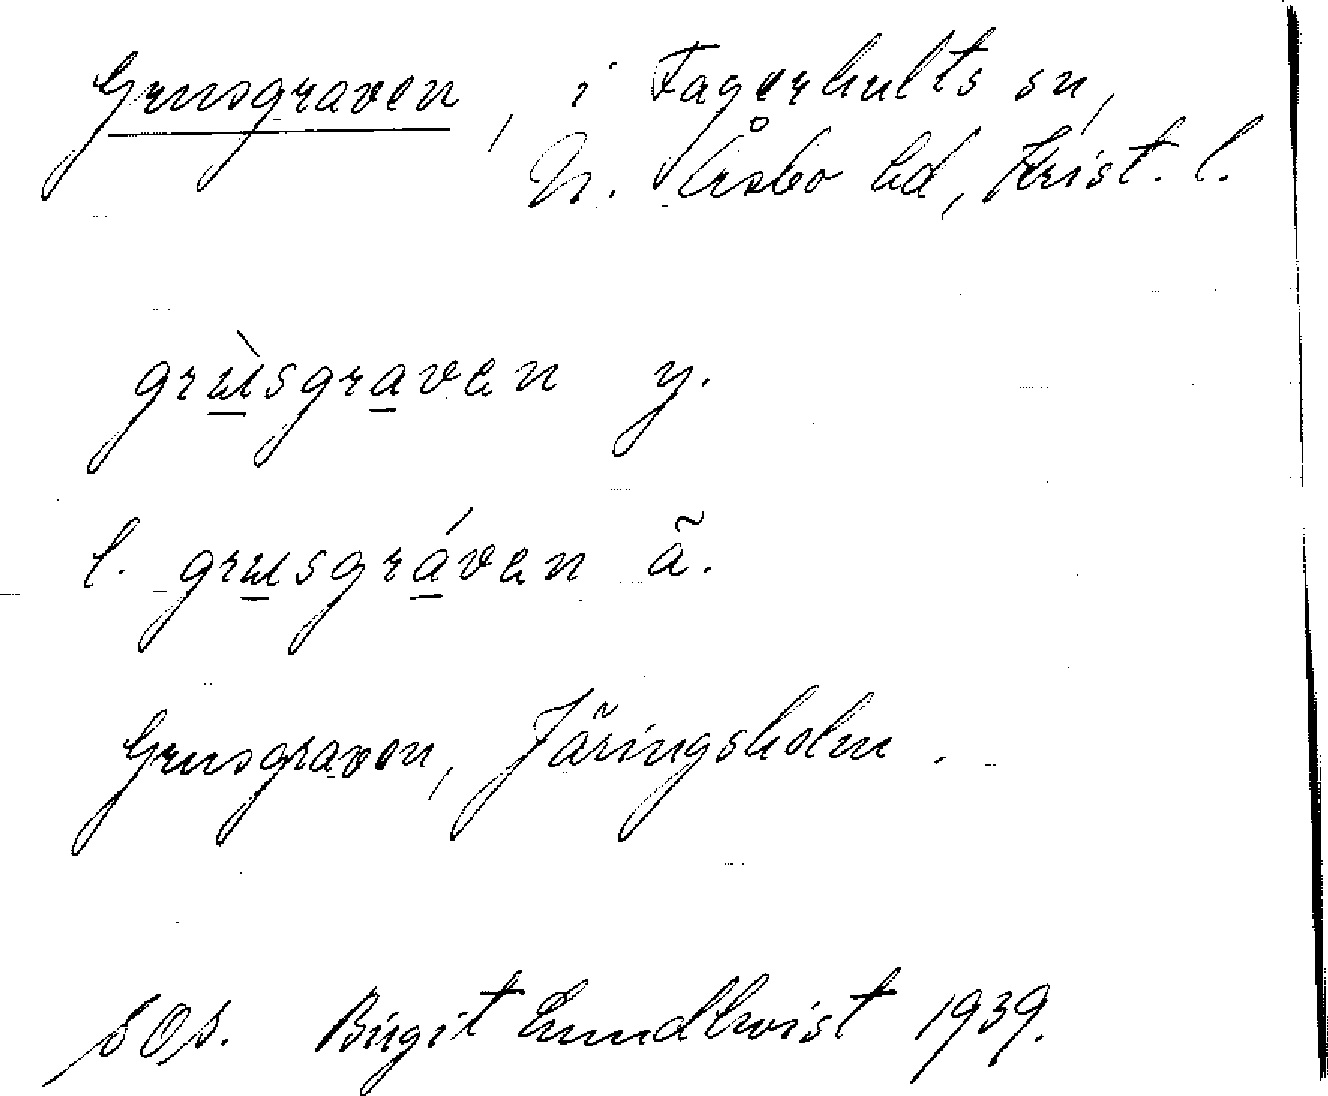 Grusgraven, i Fagerhults sn,
N. Åsbo hd, Krist. l.
grùsgraven y.
l. grusgráven ã.
Grusgraven, Järingsholm.
SOS. Birgit Lundkvist 1939.